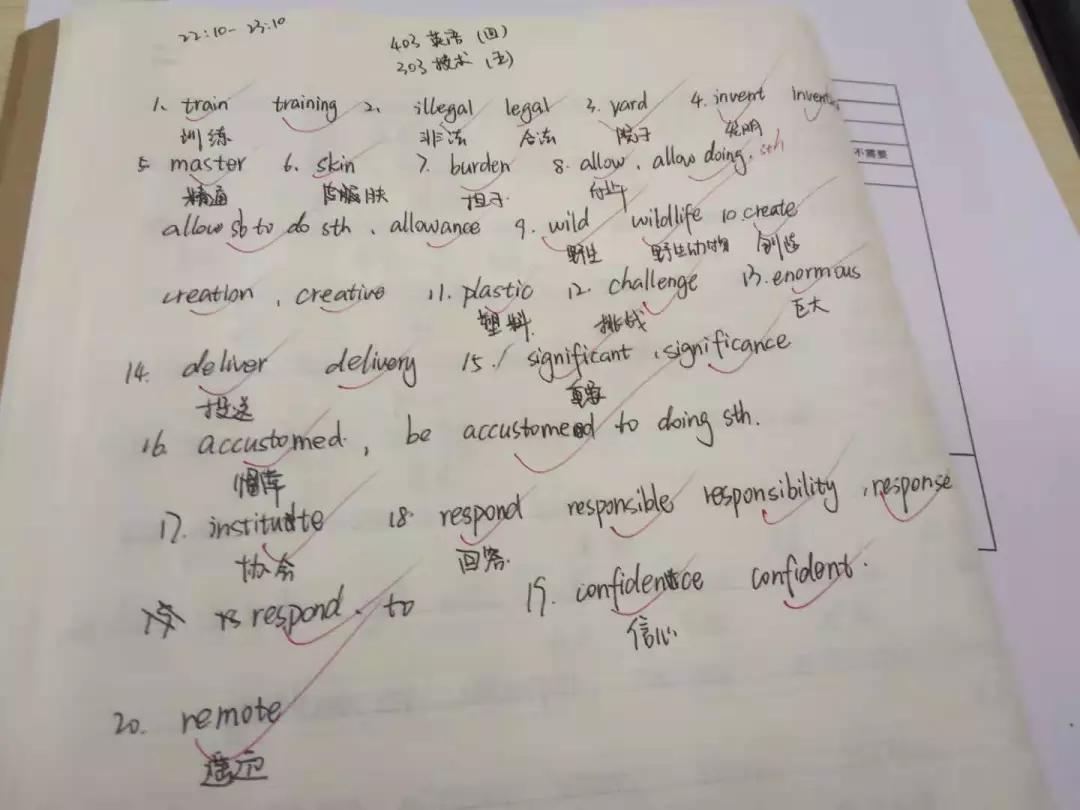 22:10-23:10
403 英语 (四)
303 技术 (五)
1. train training 2. illegal legal 3. yard 4. invent
训练 非法 合法 院子 发明
5. master 6. skin 7. burden 8. allow, allow doing sth
精通 皮肤 担子 允许
allow sb to do sth, allowance 9. wild wildlife 10. create
野生 野生动物 创造
creation, creative 11. plastic 12. challenge 13. enormous
塑料 挑战 巨大
14. deliver delivery 15. significant, significance
投送 重要
16. accustomed, be accustomed to doing sth.
17. institute 18. respond responsible responsibility, response
协会 回答
respond to 19. confidence confident.
信心
20. remote
不需要